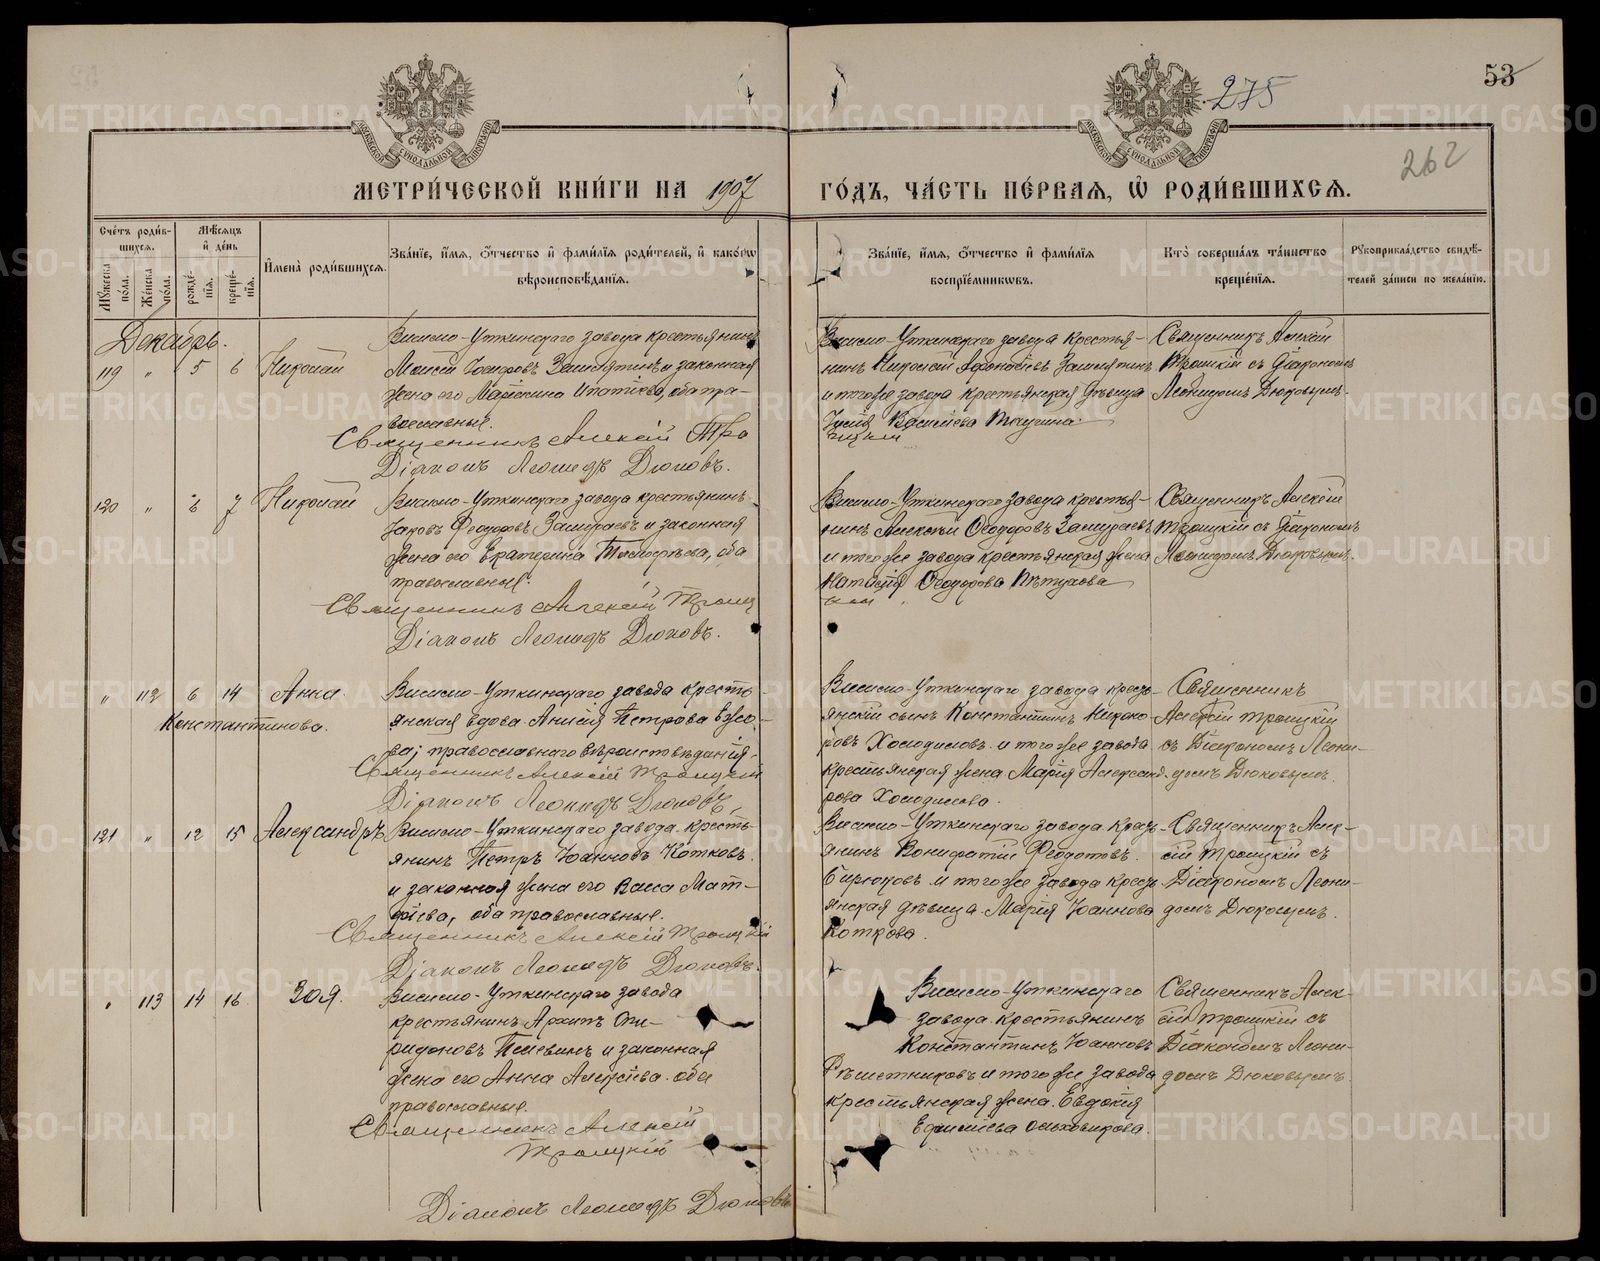 275
53
262
МЕТРИ́ЧЕСКОЙ КНИ́ГИ НА 1907 ГО́ДЪ, ЧА́СТЬ ПЕ́РВАЯ, Ѽ РОДИ́ВШИХСѦ.
Сче́тъ роди́вшихсѧ.
Мꙋ́жеска по́ла.
Же́нска по́ла.
Мѣ́сяцъ и҆ де́нь
рожде́нїѧ.
креще́нїѧ.
И҆мена̀ роди́вшихсѧ.
Зва́нїе, и҆́мѧ, ѻ҆́тчество и҆ фами́лїѧ роди́телей, и҆ како́гѡ
вѣроисповѣ́данїѧ.
Зва́нїе, и҆́мѧ, ѻ҆́тчество и҆ фами́лїѧ
воспрїе́мникѡвъ.
Кто̀ соверша́лъ та́инство
креще́нїѧ.
Рꙋкоприкла́дство свидѣ́телей за́писи по жела́нїю.
Декабрь.
119 " 5 6 Николай
Висимо-Уткинскаго завода крестьянинъ
Моисей Іосифовъ и законная
жена его Ипатіева, оба пра-
вославные.
Священникъ Алексій Тро
Діаконъ Леонидъ Дюковъ.
Висимо-Уткинскаго завода крестья-
нинъ Николай
и тогоже завода крестьянская дѣвица
Васильева
Священникъ Алексій
Троицкій съ Діакономъ
Леонидомъ Дюковымъ.
120 " 6 7 Николай
Висимо-Уткинскаго завода крестьянинъ
Яковъ Ѳеодоровъ Замураевъ и законная
жена его Екатерина Тимофѣева, оба
православные.
Священникъ Алексій Троиц
Діаконъ Леонидъ Дюковъ.
Висимо-Уткинскаго завода крестья-
нинъ Алексѣй Ѳеодоровъ Замураевъ
и тогоже завода крестьянская жена
Наталія Ѳеодорова Пѣтухова
Священникъ Алексій
Троицкій съ Діакономъ
Леонидомъ Дюковымъ.
" 112 6 14 Анна
Константинова.
Висимо-Уткинскаго завода кресть-
янская вдова Анисія Петрова Ежо-
ва, православнаго вѣроисповѣданія.
Священникъ Алексій Троицкій
Діаконъ Леонидъ Дюковъ.
Висимо-Уткинскаго завода кресть-
янскій сынъ Константинъ Никано-
ровъ Холодиловъ и тогоже завода
крестьянская жена Марія Александ-
рова Холодилова.
Священникъ
Алексій Троицкій
съ Діакономъ Леони-
домъ Дюковымъ.
121 " 12 15 Александръ
Висимо-Уткинскаго завода кресть-
янинъ Петръ Іоанновъ Котковъ
и законная жена его Васса Мат-
ѳіева, оба православные.
Священникъ Алексій Троицкій
Діаконъ Леонидъ Дюковъ.
Висимо-Уткинскаго завода кресть-
янинъ Вонифатій Ѳеодотовъ
Бирюковъ и тогоже завода кресть-
янская дѣвица Марія Іоаннова
Коткова.
Священникъ Алек-
сій Троицкій съ
Діакономъ Леони-
домъ Дюковымъ.
" 113 14 16 Зоя.
Висимо-Уткинскаго завода
крестьянинъ Архипъ Спи-
ридоновъ и законная
жена его Анна Алексіева оба
православные.
Священникъ Алексій
Троицкій
Діаконъ Леонидъ Дюковъ
Висимо-Уткинскаго
завода крестьянинъ
Константинъ Іоанновъ
Рѣшетниковъ и тогоже завода
крестьянская жена Евдокія
Ефиміева Ольховикова.
Священникъ Алек-
сій Троицкій съ
Діакономъ Леони-
домъ Дюковымъ.
METRIKI.GASO-URAL.RU